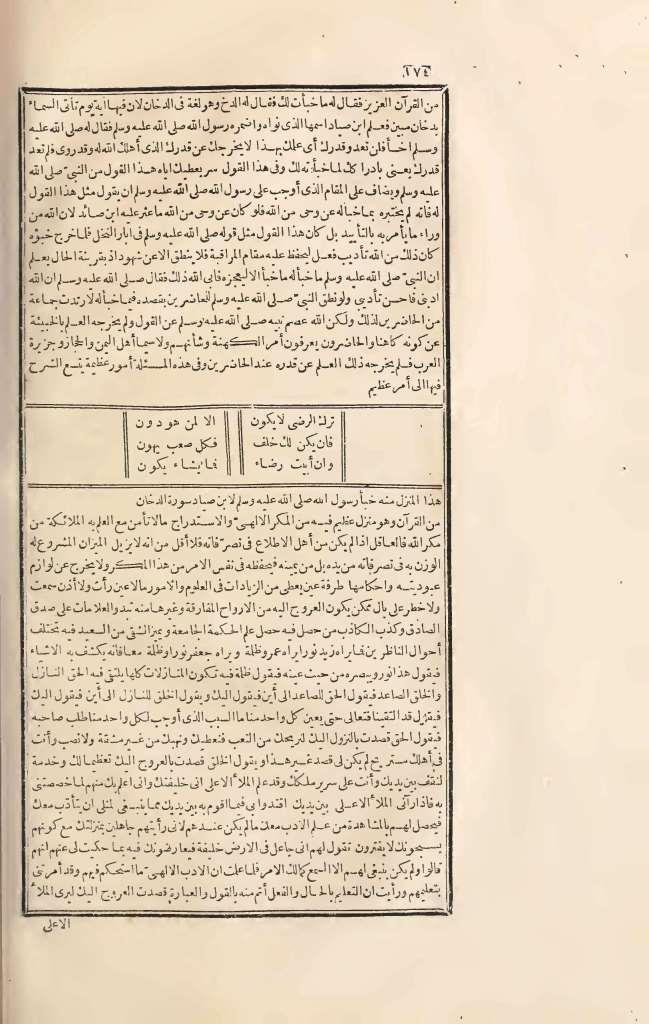 ١٧٤
من القرآن العزيز فقال له ما خبأت لك فقال له الدخ وهو لغة فى الدخان لان فيها آية يوم تأتى السماء
بدخان مبين فعلم ابن صياد اسمها الذى نواه واضمره رسول الله صلى الله عليه وسلم فقال له صلى الله عليه
وسلم اخسأ فلن تعد وقدرك أى علمك بهذا لا يخرجك عن قدرك الذى أهلك الله له وقد روى فلم تعد
قدرك يعنى بادراكك لما خبأته لك وفى هذا القول سر يعطيك اياه هذا القول من النبى صلى الله
عليه وسلم ويضاف على المقام الذى أوجب على رسول الله صلى الله عليه وسلم ان يقول مثل هذا القول
له فانه لم يختبره بما خبأ له عن وحى من الله فلو كان عن وحى من الله ما عثر عليه ابن صائد لان الله من
وراء ما يأمر به بالتأييد بل كان هذا القول مثل قوله صلى الله عليه وسلم فى ابار النخل فلما خرج خبؤه
كان ذلك من الله تأديب فعل ليحفظ عليه مقام المراقبة فلا ينطق الا عن شهود اذ بقرينة الحال يعلم
ان النبى صلى الله عليه وسلم ما خبأ له ما خبأ الا ليعجزه فابى الله ذلك فقال صلى الله عليه وسلم ان الله
ادبنى فاحسن تأديبى ولو نطق النبى صلى الله عليه وسلم للحاضرين بقصده فيما خبأ له لارتدت جماعة
من الحاضرين لذلك ولكن الله عصم نبيه صلى الله عليه وسلم عن القول ولم يخرجه العلم بالخبيئة
عن كونه كاهنا والحاضرون يعرفون أمر الكهنة وشأنهم ولا سيما أهل اليمن والحجاز وجزيرة
العرب فلم يخرجه ذلك العلم عن قدره عند الحاضرين وفى هذه المسئلة أمور عظيمة يتسع الشرح
فيها الى أمر عظيم
ترك الرضى لا يكون الا لمن هو دون
فان يكن لك خلف فكل صعب يهون
وان أبيت رضاء فما يشاء يكون
هذا المنزل منه خبأ رسول الله صلى الله عليه وسلم لابن صياد سورة الدخان
من القرآن وهو منزل عظيم فيه من المكر الالهى والاستدراج ما لا تأمن مع العلم به الملائكة من
مكر الله فالعاقل اذا لم يكن من أهل الاطلاع فى تصرفاته فلا أقل من انه لا يزيل الميزان المشروع له
الوزن به فى تصرفاته من يده بل من يمينه فيحفظه فى نفس الامر من هذا المكر ولا يخرج عن لوازم
عبوديته واحكامها طرفة عين يعطى من الزيادات فى العلوم والامور ما لا عين رأت ولا أذن سمعت
ولا خطر على بال ممكن يكون العروج اليه من الارواح المفارقة وغيرها منه تبدو العلامات على صدق
الصادق وكذب الكاذب من حصل فيه حصل علم الحكمة الجامعة ويميز الشقى من السعيد فيه تختلف
أحوال الناظرين فما يراه زيد نورا يراه عمرو ظلمة ويراه جعفر نورا وظلمة معا فانه يكشف به الاشياء
فيقول هذا نور ويبصره من حيث عينه فيقول ظلمة فيه تكون المنازلات كلها يلتقى فيه الحق النازل
والخلق الصاعد فيقول الحق للصاعد الى أين فيقول اليك ويقول الخلق للنازل الى أين فيقول اليك
فيقول قد التقينا فتعالى حتى يعين كل واحد منا ما السبب الذى أوجب لكل واحد منا طلب صاحبه
فيقول الحق قصدت بالنزول اليك لنريحك من التعب فنعطيك ونهبك من غير مشقة ولا نصب وأنت
فى أهلك مستريح لم يكن لى قصد غير هذا ويقول الخلق قصدت بالعروج اليك تعظيما لك وخدمة
لنقف بين يديك وأنت على سرير ملكك وقد علم الملأ الاعلى انى خليفتك وانى اعلم بك منهم لما خصصتنى
به فاذا رآنى الملأ الاعلى بين يديك اقتدوا بى فيما أقوم به بين يديك مما ينبغى لمثلى ان يتأدب معك
فيحصل لهم بالمشاهدة من علم الادب معك ما لم يكن عندهم لانى رأيتهم جاهلين بمنزلتك مع كونهم
يسبحونك لا يفترون تقول لهم انى جاعل فى الارض خليفة فيعارضونك فيه بما حكيت لى عنهم انهم
قالوا ولم يكن ينبغى لهم الا السمع كما لك الامر فلما علمت ان الادب الالهى ما استحكم فيهم وقد أمرتنى
بتعليمهم ورأيت ان التعليم بالحال والفعل أتم منه بالقول والعبارة قصدت العروج اليك ليرى الملأ
الاعلى